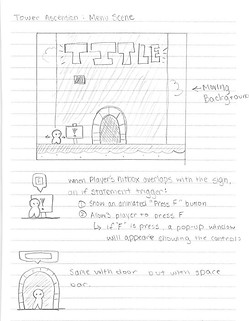 Tower Ascension - Menu Scene
TITLE
← Moving
Background
When Player's Hitbox overlaps with the sign,
an if statement trigger:
① Show an animated "Press F" button
② Allows player to press F
↳ if "F" is press, a pop-up window
will appeare showing the controls
Same with door but with space
bar.